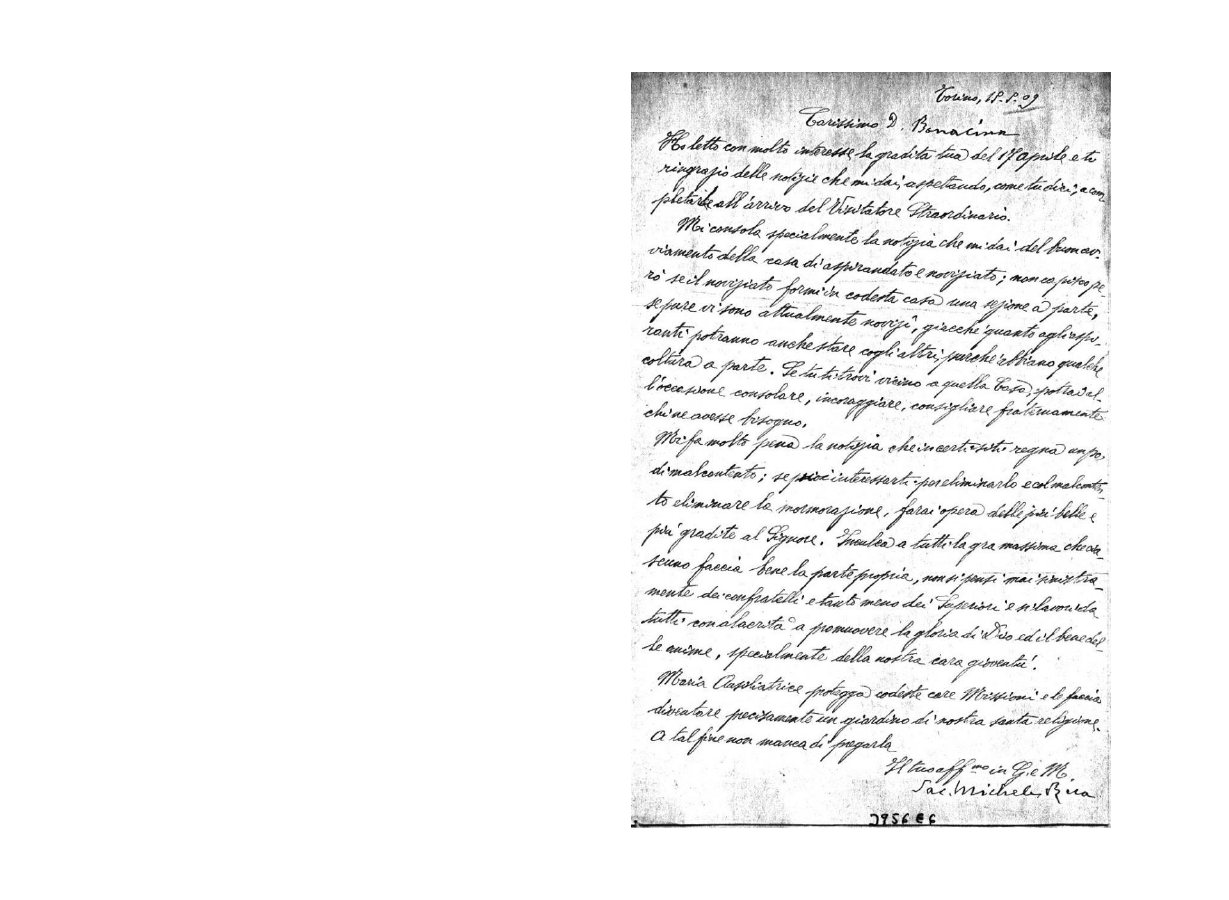 Torino, 18.5.09
Carissimo D. Bonacina
Ho letto con molto interesse la gradita tua del 17 aprile e ti
ringrazio delle notizie che mi dai, aspettando, come tu dici, a com
pletarle all'arrivo del Visitatore Straordinario.
Mi consola specialmente la notizia che mi dai del buon av-
viamento della casa di aspirandato e noviziato; non capisco pe-
rò se il noviziato formi in codesta casa una sezione a parte,
se pure vi sono attualmente novizi, giacché quanto agli aspi-
ranti potranno anche stare cogli altri, purché abbiano qualche
coltura a parte. Se tu ti trovi vicino a quella Casa, potrai al-
l'occasione consolare, incoraggiare, consigliare fraternamente
chi ne avesse bisogno.
Mi fa molto pena la notizia che in certi siti regna un po'
di malcontento; se puoi interessarti per eliminarlo e col malconten-
to eliminare la mormorazione, farai opera delle più belle e
più gradite al Signore. Inculca a tutti la gra massima che cia-
scuno faccia bene la parte propria, non si pensi mai sinistra
mente dei confratelli e tanto meno dei Superiori e si lavori da
tutti con alacrità a promuovere la gloria di Dio ed il bene del-
le anime, specialmente della nostra cara gioventù.
Maria Ausiliatrice protegga codeste care Missioni e le faccia
diventare precisamente un giardino di nostra santa religione.
A tal fine non manca di pregarla
Il tuo aff.mo in G. e M.
Sac. Michele Rua
3956 E6